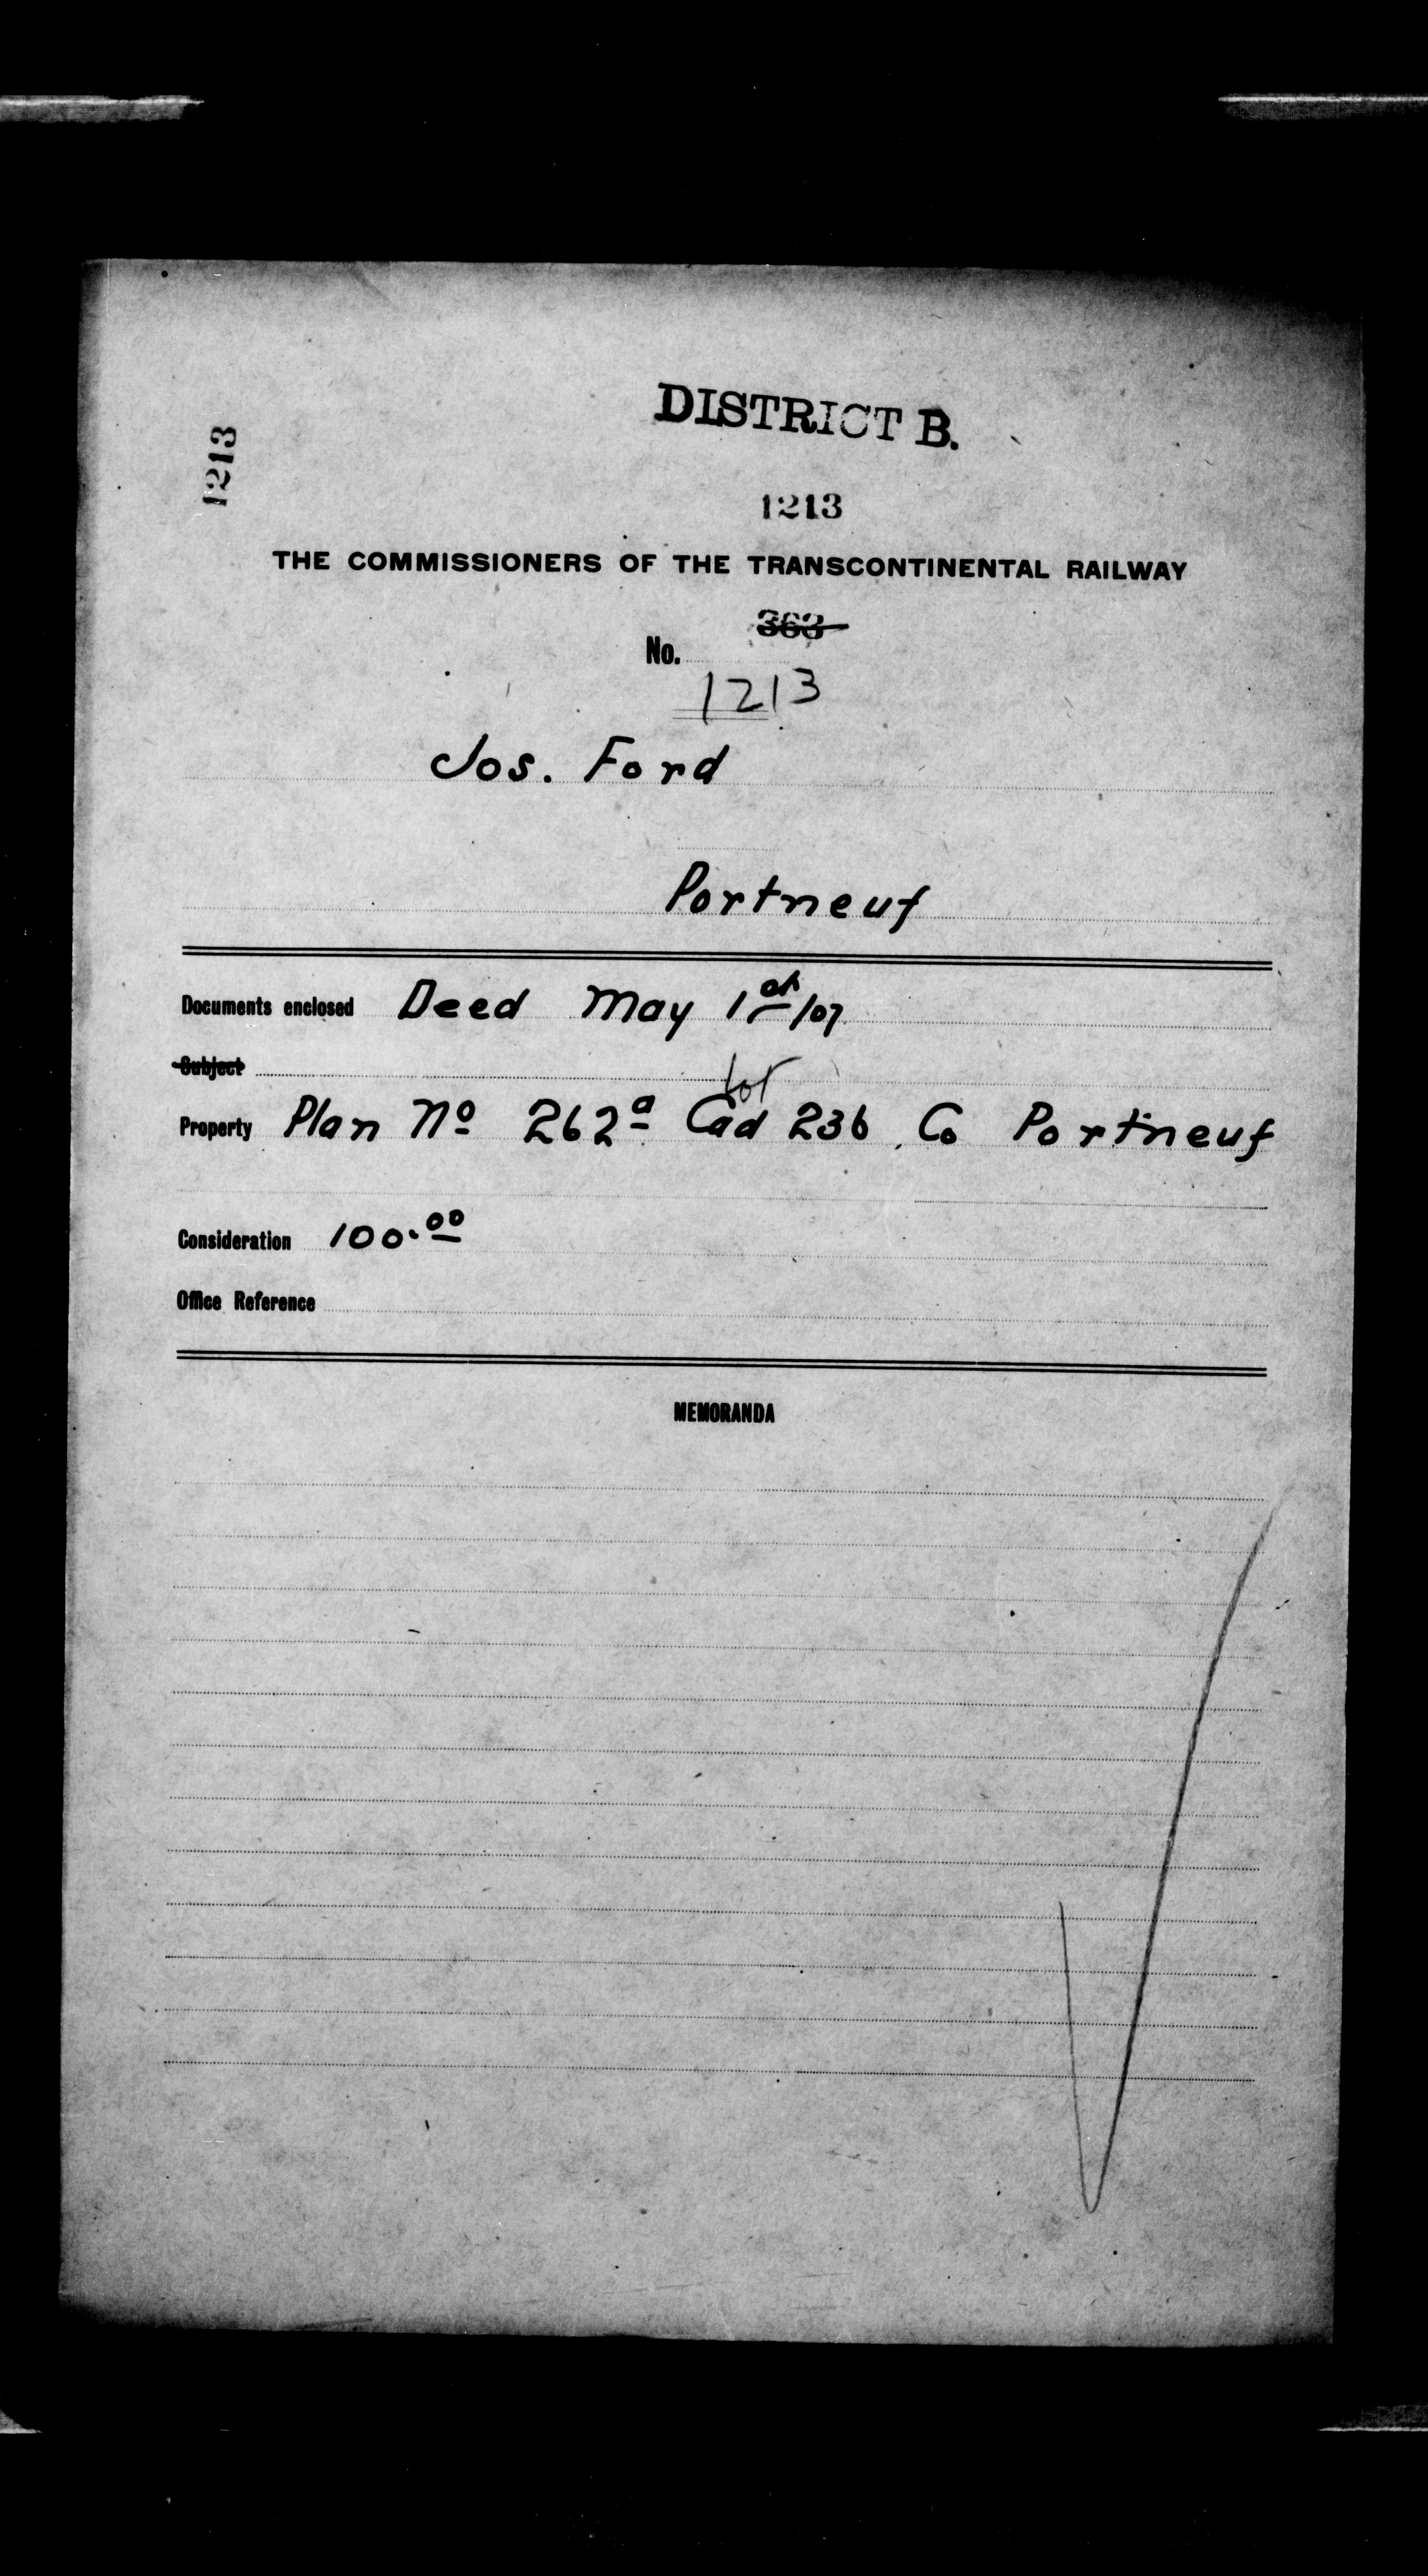 DISTRICT B.
1213
1213
THE COMMISSIONERS OF THE TRANSCONTINENTAL RAILWAY
363
No.
1213
Jos. Ford
Portneuf
Documents enclosed Deed May 1st/07
Subject
lot
Property Plan No 262a Cad 236, Co Portneuf
Consideration 100.00
Office Reference
MEMORANDA